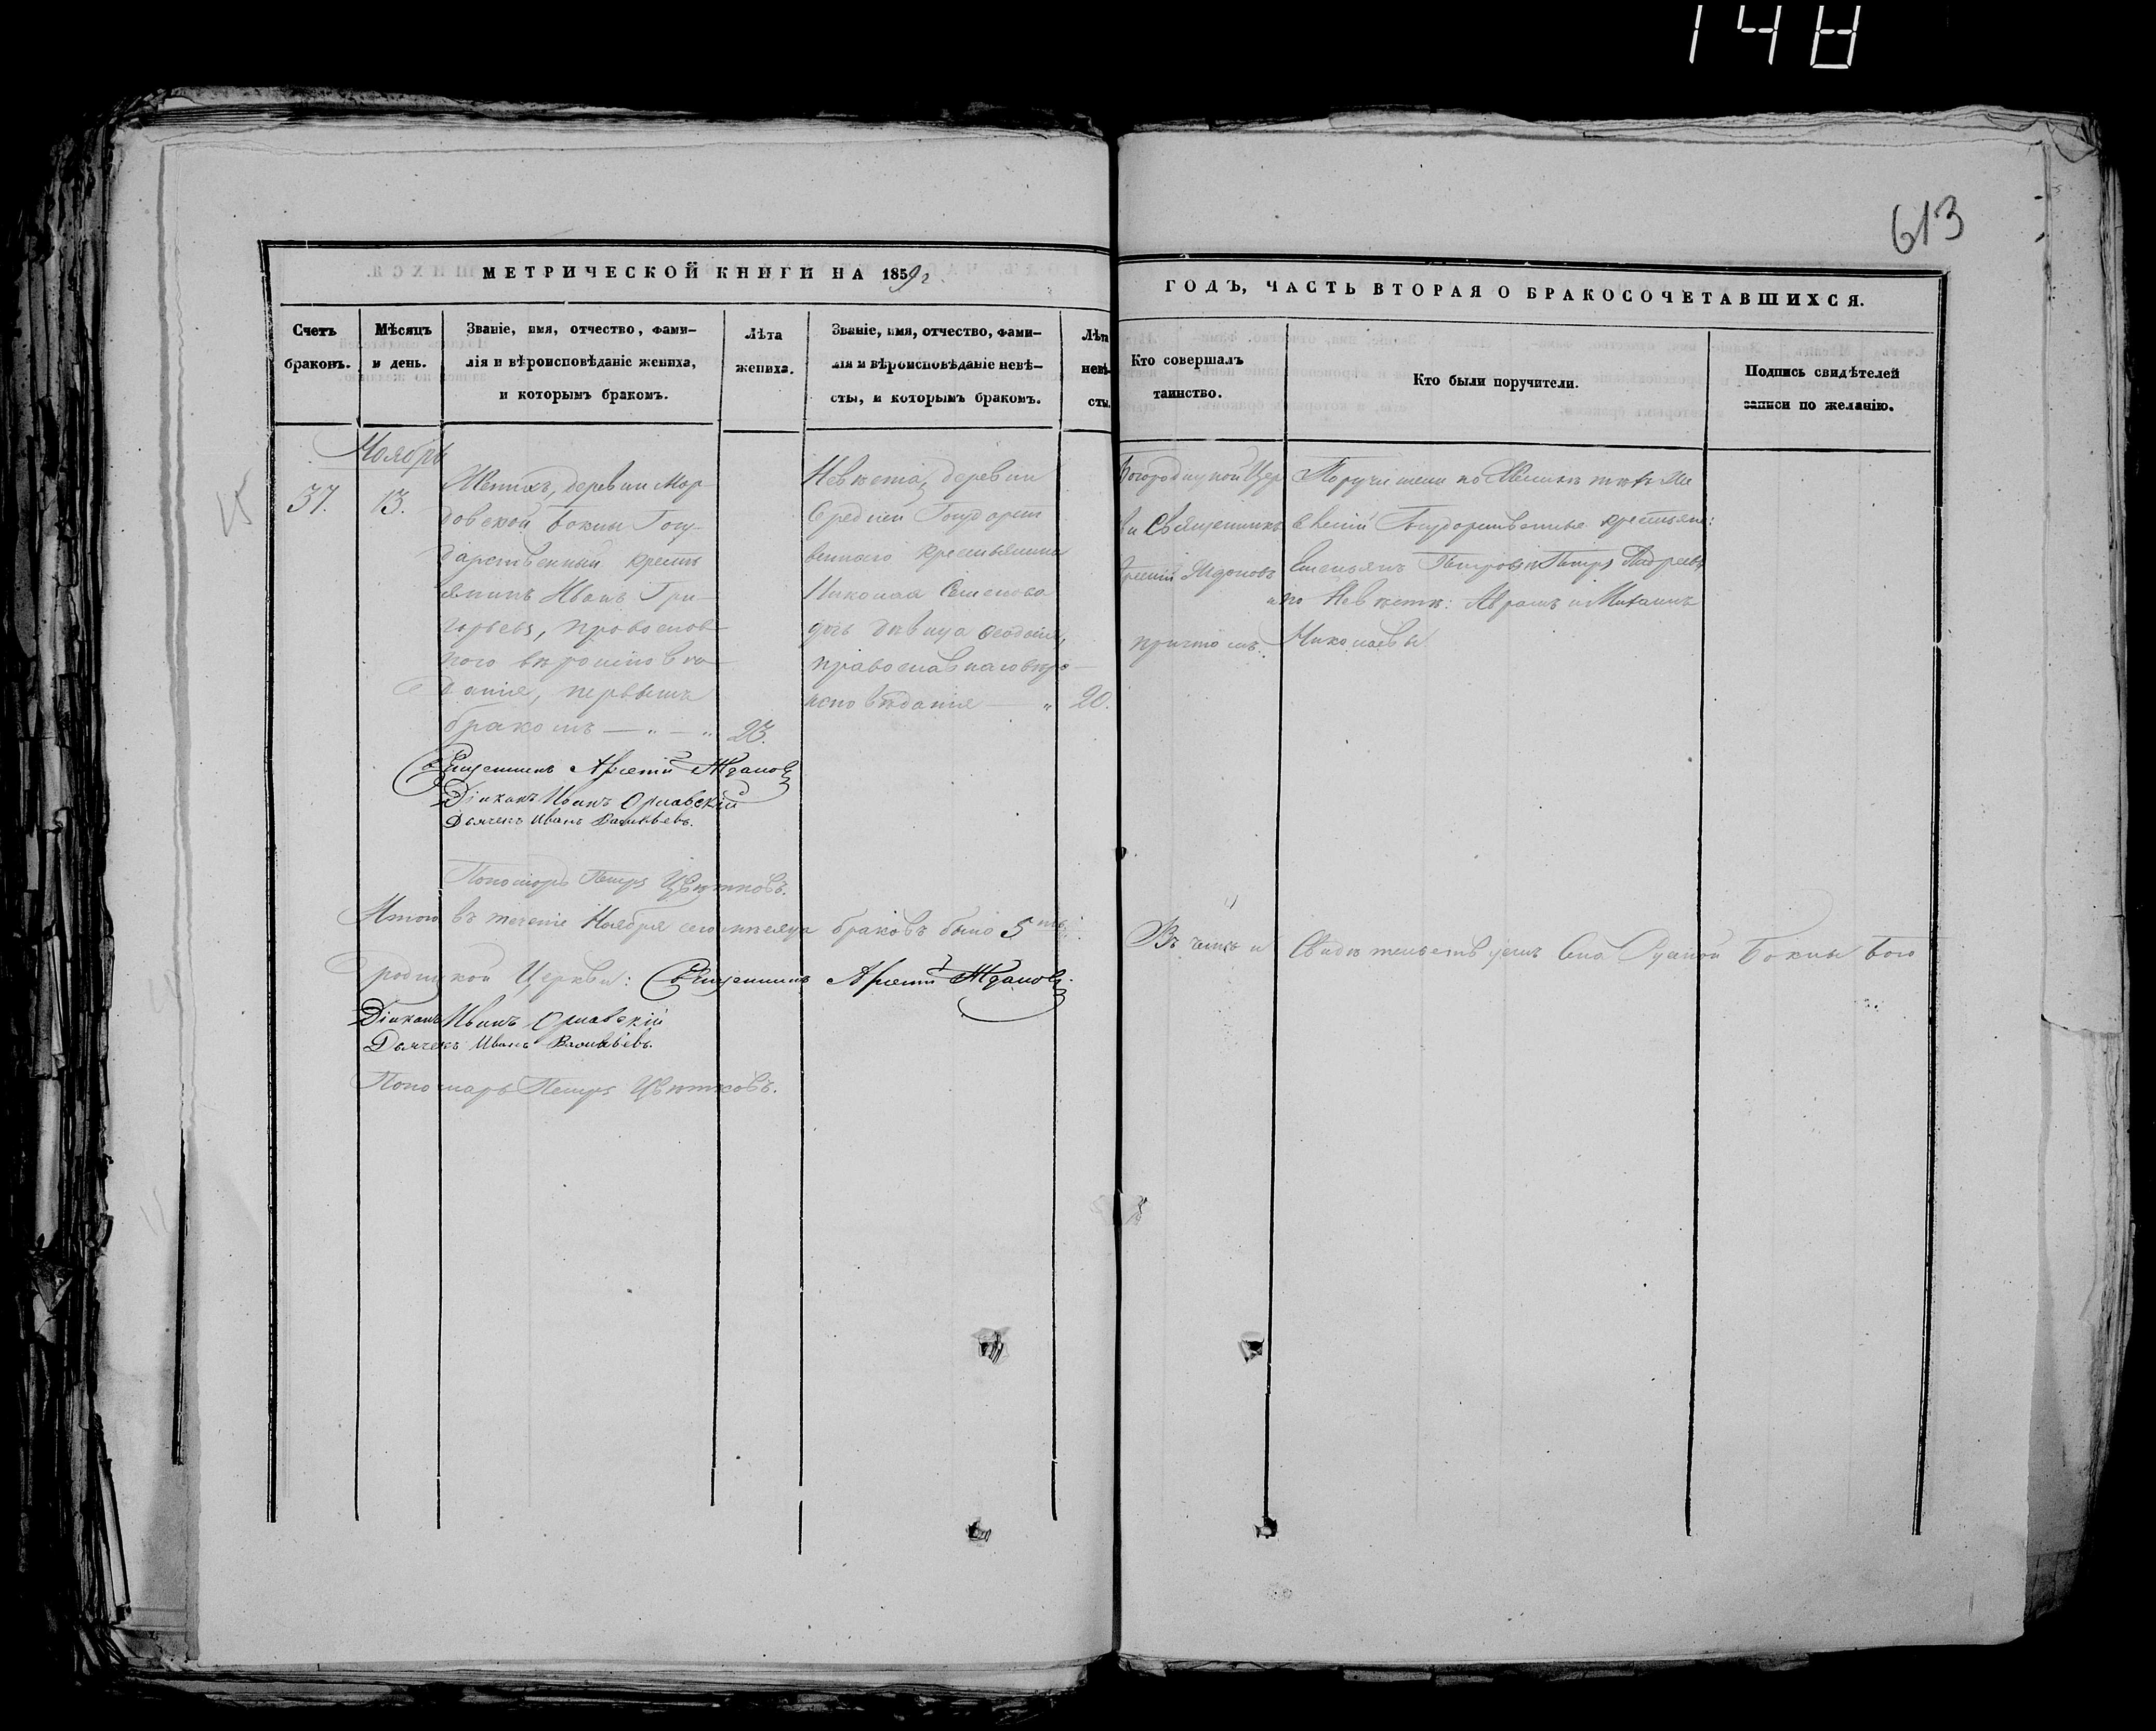 148
613
МЕТРИЧЕСКОЙ КНИГИ НА 1859 г.
ГОДЪ, ЧАСТЬ ВТОРАЯ О БРАКОСОЧЕТАВШИХСЯ.
Счетъ
браковъ.
Мѣсяцъ
и день.
Званіе, имя, отчество, фами-
лія и вѣроисповѣданіе жениха,
и которымъ бракомъ.
Лѣта
жениха.
Званіе, имя, отчество, фами-
лія и вѣроисповѣданіе невѣ-
сты, и которымъ бракомъ.
Лѣта
невѣ-
сты.
Кто совершалъ
таинство.
Кто были поручители.
Подпись свидѣтелей
записи по желанію.
Ноябрь
37.
13.
Женихъ, деревни Мор-
довской Бокны Госу-
дарственный кресть
янинъ Иванъ Гри-
горьевъ, православ-
ного вѣроисповѣ-
данія, первымъ
бракомъ — „ — „
23.
Невѣста, деревни
Средней Государст
веннаго крестьянина
Николая Семенова
дочь дѣвица Ѳеодосія,
православнаго вѣро-
исповѣданія — „
20.
Богородицкой Цер
кви Священникъ
Арсеній Ждановъ
причтомъ.
Поручители по Женихѣ тѣхъ же
селеній Государственные крестьяне:
Емельянъ Петровъ и Петръ Андреевъ
и по Невѣстѣ: Аврамъ и Михаилъ
Николаевы
Священникъ Арсеній Ждановъ
Діаконъ Иванъ Орлавскій
Дьячекъ Иванъ Васильевъ.
Пономарь Петръ Цвѣтковъ.
Итого въ теченіе Ноября сего мѣсяца браковъ было 5ть.
Въ чемъ и Свидѣтельствуемъ Села Руской Бокны Бого
родицкой Церкви: Священникъ Арсеній Ждановъ.
Діаконъ Иванъ Орлавскій
Дьячекъ Иванъ Васильевъ.
Пономарь Петръ Цвѣтковъ.